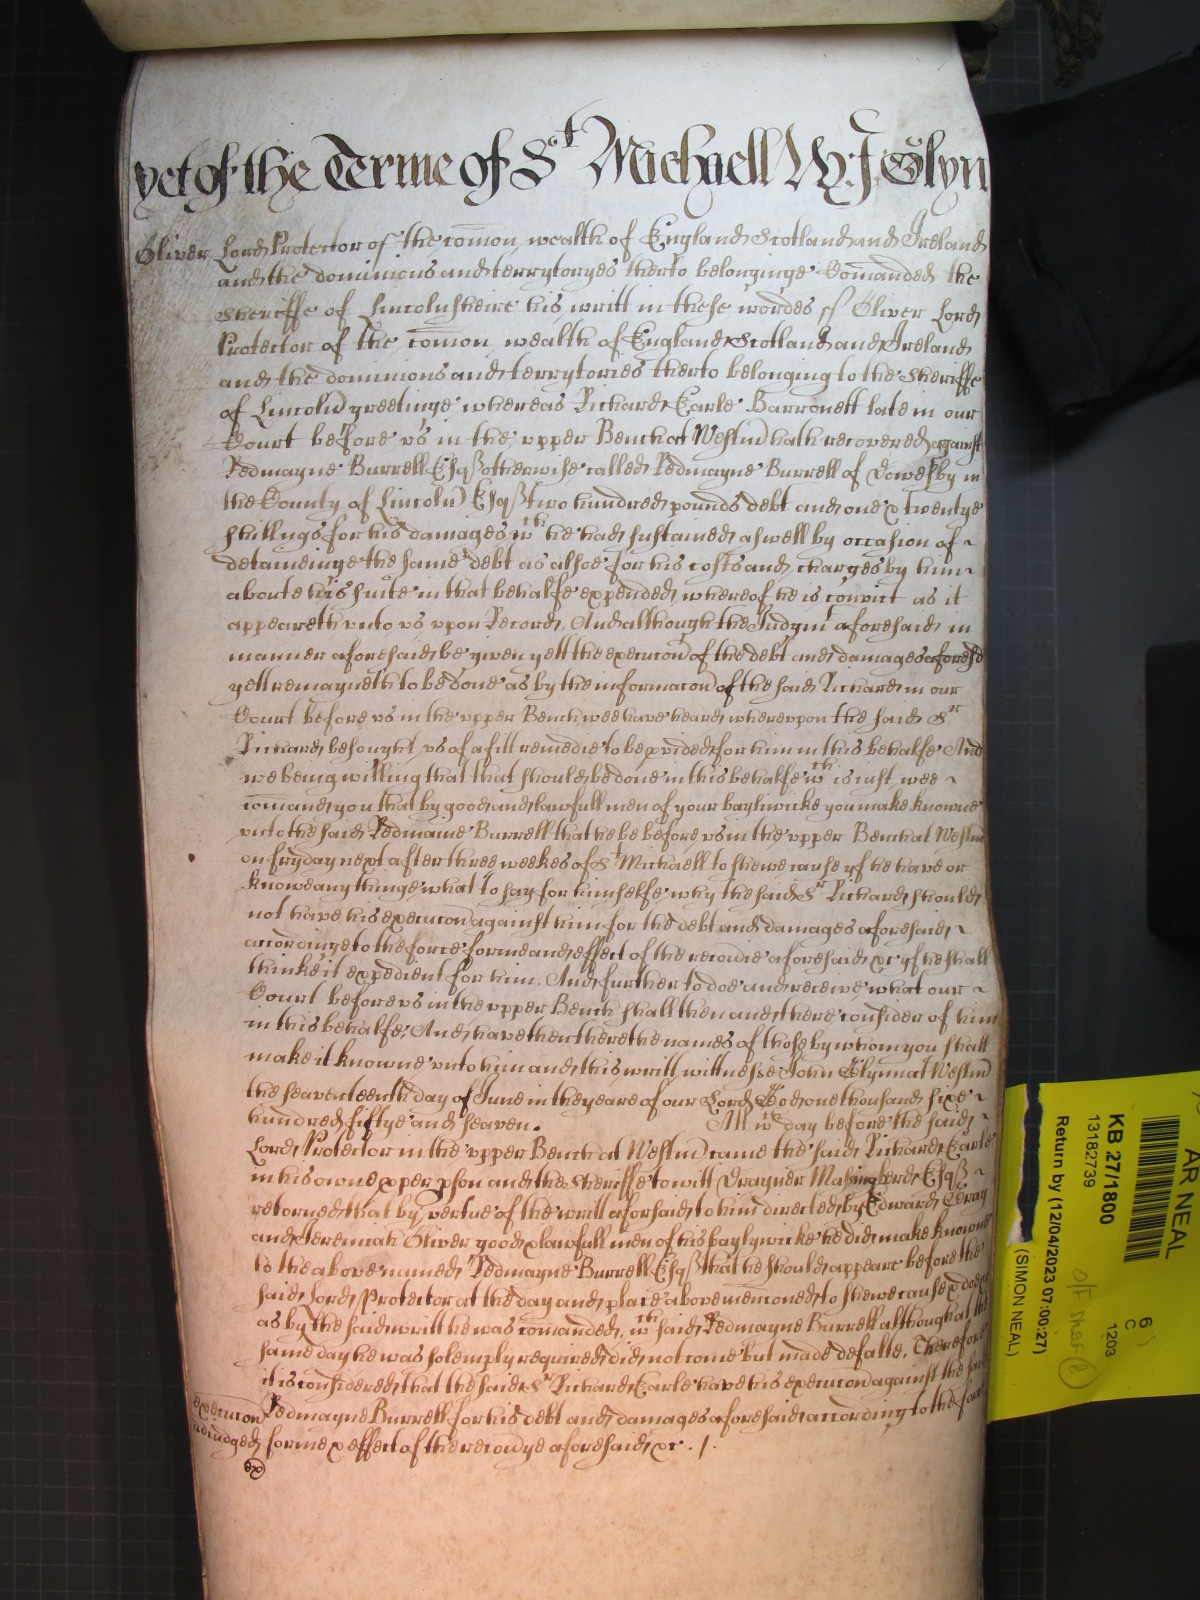 yet of the Terme of St Michaell W. J Glyn
Oliver Lord Protector of the comon wealth of England Scotland and Ireland
and the dominions and terrytoryes therto belonginge Comanded the
Sheriffe of Lincolnsheire his writt in these wordes ss Oliver Lord
Protector of the comon wealth of England Scotland and Ireland
and the dominions and terrytories therto belonging to the Sheriffe
of Lincoln greetinge whereas Richard Earle Barronett late in our
Court before us in the upper Bench at Westm hath recovered against
Redmayne Burrell Esqr otherwise called Redmayne Burrell of Dowesby in
the County of Lincoln Esqr two hundred pounds debt and one & twentye
shillings for his damages wch he had sustained aswell by occasion of
detaineinge the same debt as alsoe for his costs and charges by him
aboute his suite in that behalfe expended whereof he is convict as it
appeareth unto us upon Record. And although the Judgmt aforesaid in
manner aforesaid be given yett the execucon of the debt and damages aforesd
yett remayneth to be done as by the informacon of the said Richard in our
Court before us in the upper Bench wee have heard whereupon the said Sr
Richard besought us of a fitt remedie to be pvided for him in this behalfe And
we being willing that that should be done in this behalfe wch is iust wee
comand you that by good and lawfull men of your bayliwicke you make knowne
unto the said Redmaine Burrell that he be before us in the upper Bench at Westm
on fryday next after three weekes of St Michaell to shewe cause yf he have or
knowe any thinge what to say for himselfe why the said Sr Richard should
not have his execucon against him for the debt and damages aforesaid
accordinge to the force forme and effect of the recovrie aforesaid &c yf he shall
thinke it expedient for him. And further to doe and receive what our
Court before us in the upper Bench shall then and there consider of him
in this behalfe, And have then there the names of those by whom you shall
make it knowne unto him and this writt wittnesse John Glynn at Westm
the seaventeenth day of June in the yeare of our Lord God one thousand sixe
hundred fiftye and seaven. Att wch day before the said
Lord Protector in the upper Bench at Westm came the said Richard Earle
in his owne pper pson and the Sheriffe to witt Drayner Massingberd Esqr
retorned that by vertue of the writt aforesaid to him directed by Edward Gray
and Jeremiah Oliver good & lawfull men of his baylywicke he did make knowne
to the above named Redmayne Burrell Esqr that he should appeare before the
said Lord Protector at the day and place above mencioned to shewe cause & doe
as by the said writt he was comanded, wch said Redmayne Burrell although at the
same day he was solemply required did not come but made defalte. Therefore
it is considered that the said Sr Richard Earle have his execucon against the said
execucon Redmayne Burrell for his debt and damages aforesaid according to the force
adiudged forme & effect of the recovrye aforesaid &c.
AR NEAL
KB 27/1800
13182739
Return by (12/04/2023 07:00:27)
(SIMON NEAL)
6
C
1203